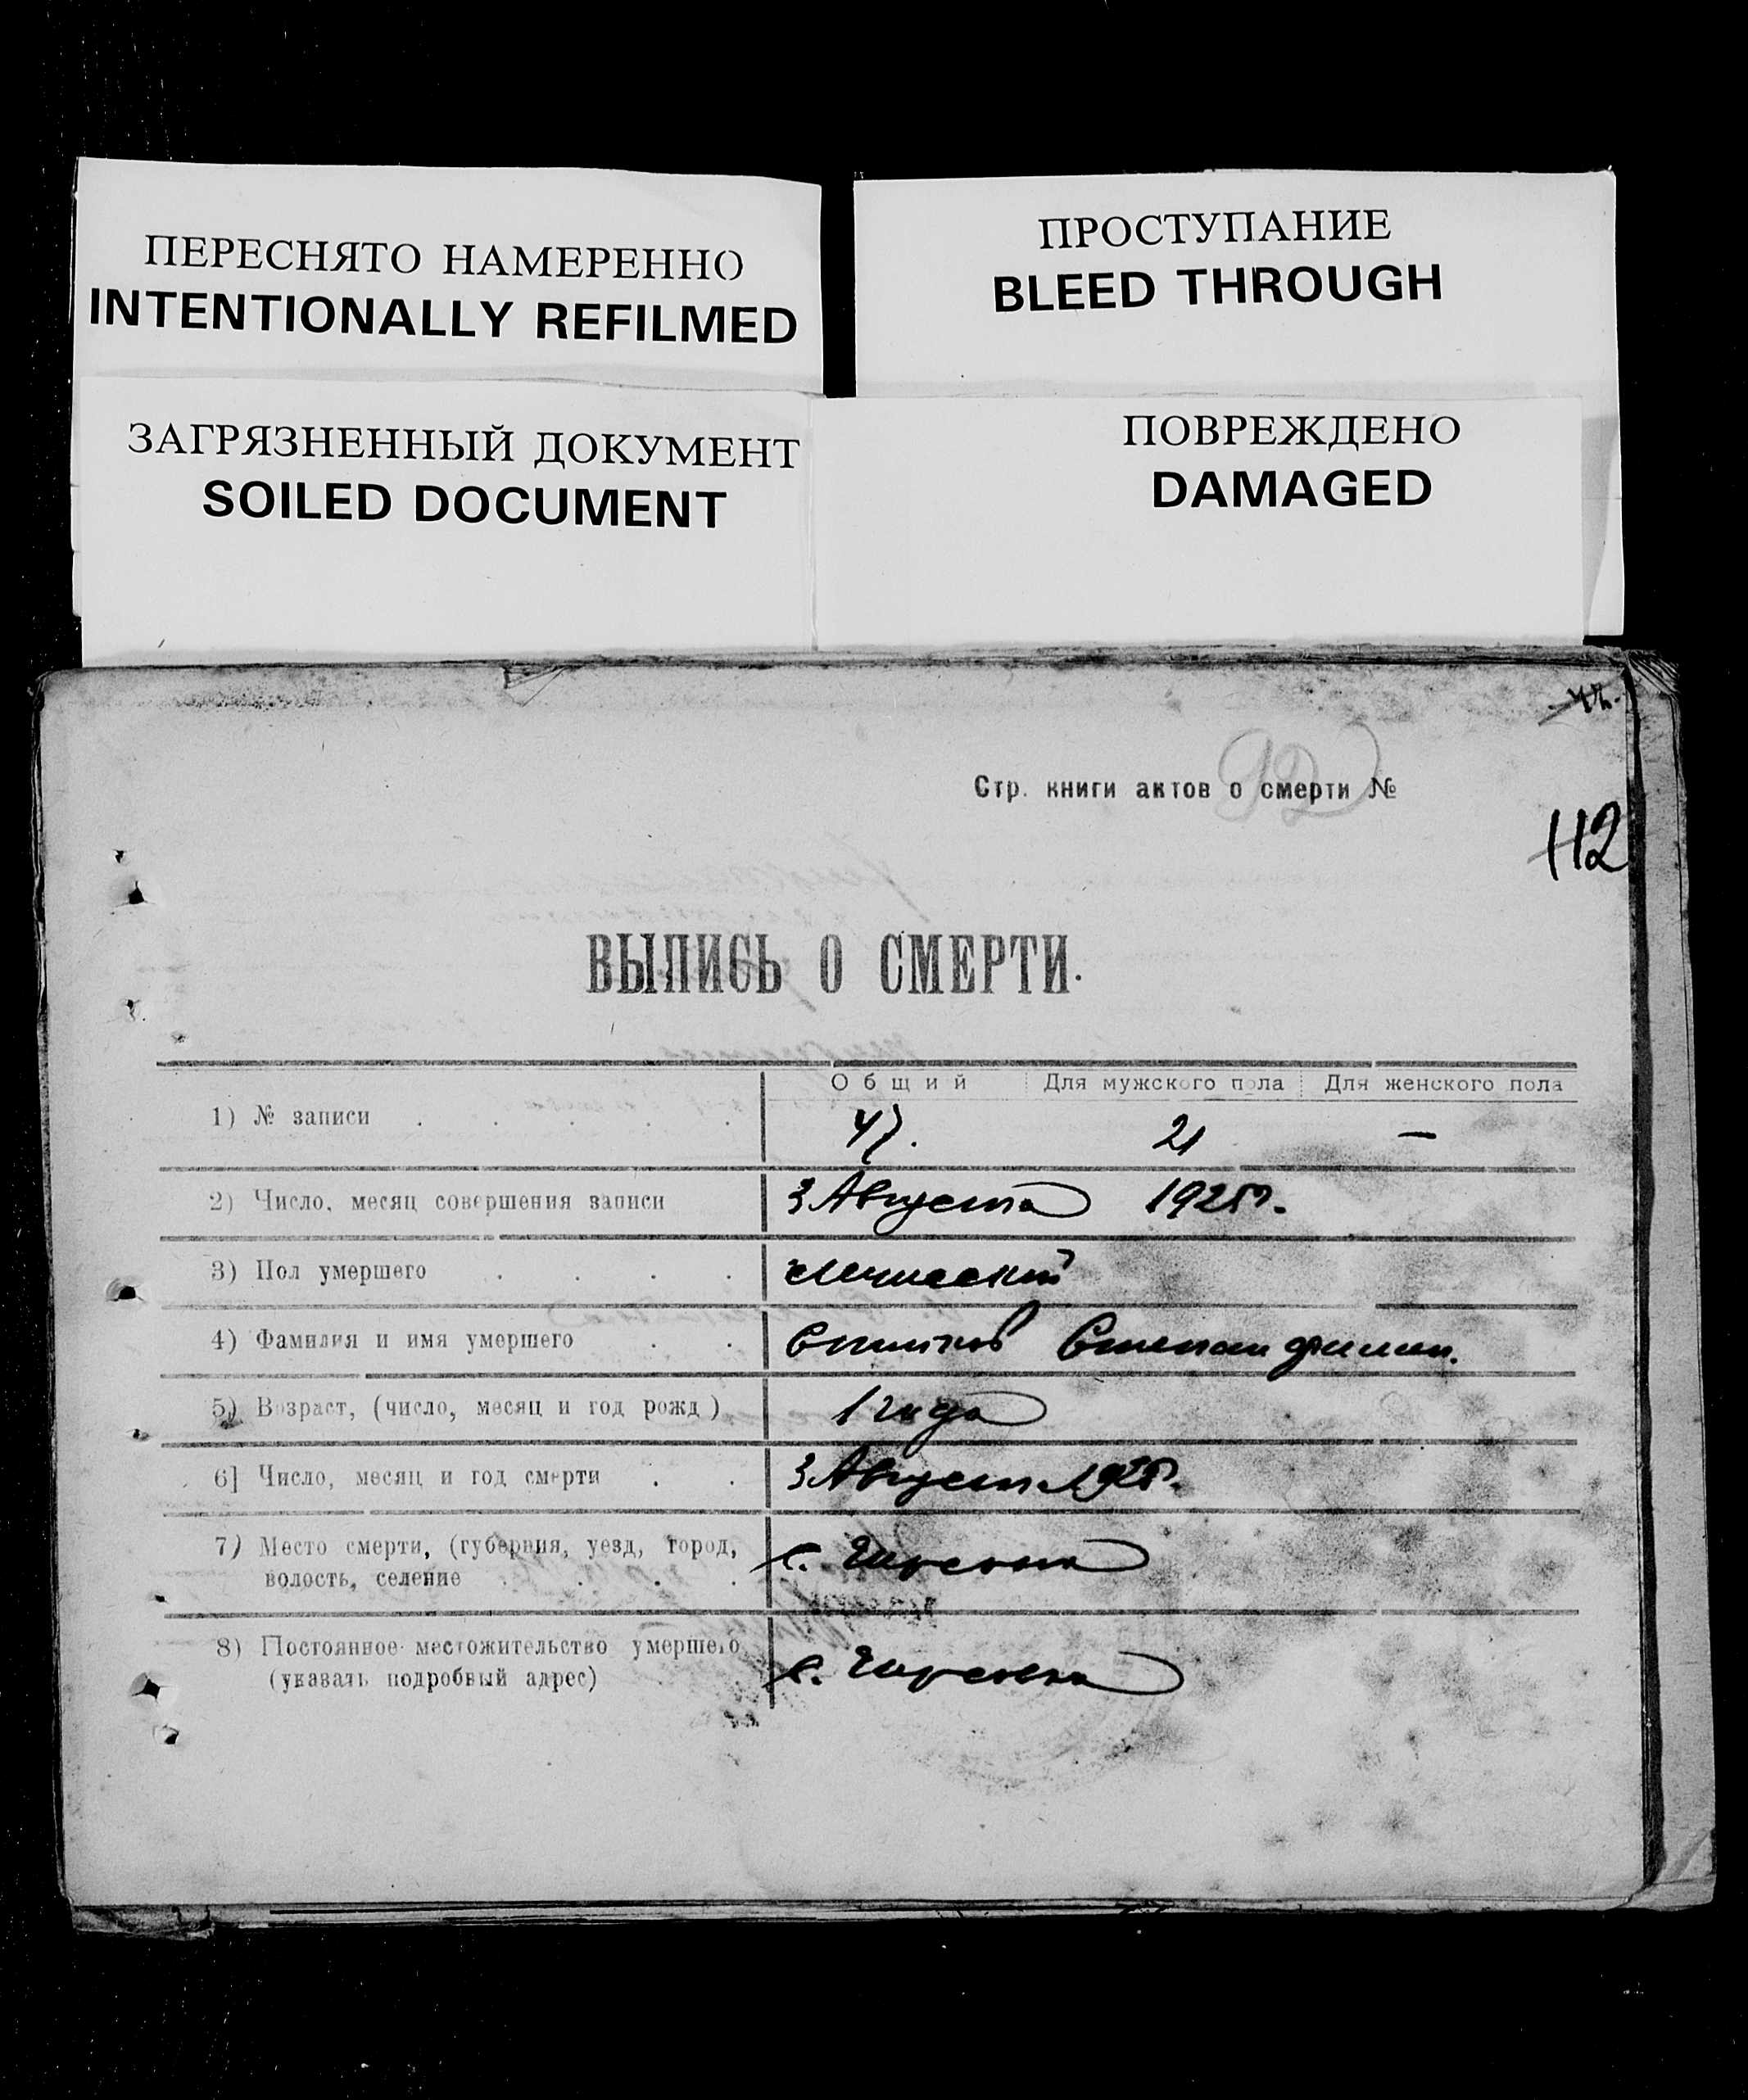 ПЕРЕСНЯТО НАМЕРЕННО
INTENTIONALLY REFILMED
ПРОСТУПАНИЕ
BLEED THROUGH
ЗАГРЯЗНЕННЫЙ ДОКУМЕНТ
SOILED DOCUMENT
ПОВРЕЖДЕНО
DAMAGED
92
Стр. книги актов о смерти №
112
ВЫПИСЬ О СМЕРТИ.
Общий Для мужского пола Для женского пола
1) № записи 47. 21 —
2) Число, месяц совершения записи 3 Августа 1925 г.
3) Пол умершего мужской
4) Фамилия и имя умершего Степан Филип.
5) Возраст, (число, месяц и год рожд) 1 года
6] Число, месяц и год смерти 3 Августа 1925 г.
7) Место смерти, (губерния, уезд, город,
волость, селение с.
8) Постоянное местожительство умершего
(указать подробный адрес) с.